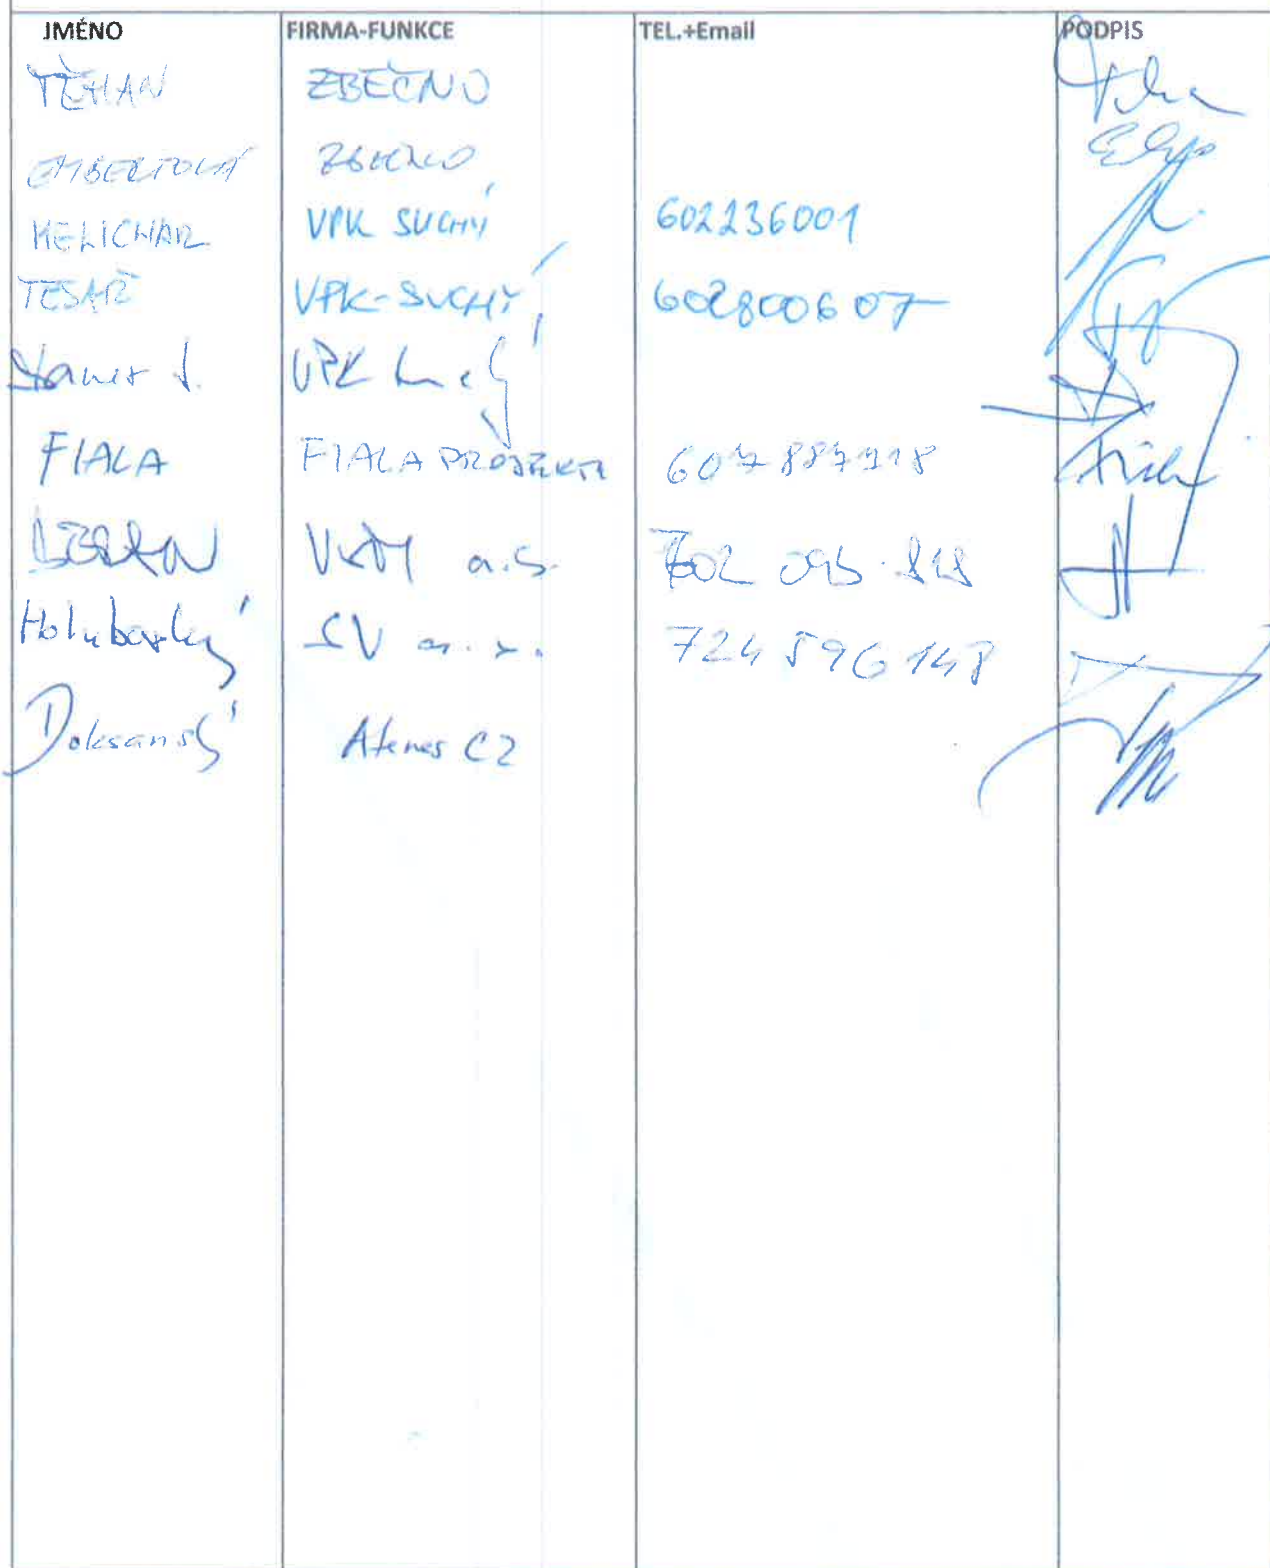 JMÉNO FIRMA-FUNKCE TEL.+Email PODPIS
TĚHAN ZBEČNO
EMBERTOVÁ ZBEČNO
MELICHAR VPK SUCHÝ 602236001
TESAŘ VPK-SUCHÝ 602800607
VPK
FIALA FIALA PROJEKTY 607 887 918
a.s. 702 095 818
Holubovský SV a.s. 724 596 148
Doksanský Atenes CZ